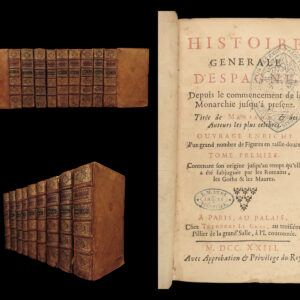 HISTOIRE
GENERALE
D'ESPAGNE
Depuis le commencement de la
Monarchie jusqu'à present.
Tirée de MARIANA & des
Auteurs les plus celebres.
OUVRAGE ENRICHI
d'un grand nombre de Figures en taille-douce
TOME PREMIER.
Contenant son origine jusqu'au temps qu'elle
a été subjuguée par les Romains,
les Goths & les Maures.
A PARIS, AU PALAIS,
Chez THEODORE LE GRAS, au troisiéme
Pillier de la grand'Salle, à l'L couronnée.
M. DCC. XXIII.
Avec Approbation & Privilege du Roy